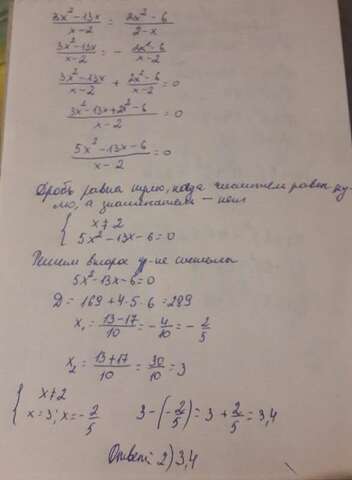 (3x² − 13x)/(x − 2) = (2x² − 6)/(2 − x)
(3x² − 13x)/(x − 2) = − (2x² − 6)/(x − 2)
(3x² − 13x)/(x − 2) + (2x² − 6)/(x − 2) = 0
(3x² − 13x + 2x² − 6)/(x − 2) = 0
(5x² − 13x − 6)/(x − 2) = 0
Дробь равна нулю, когда числитель равен ну-
лю, а знаменатель – нет
{ x ≠ 2
5x² − 13x − 6 = 0
Решим второе ур-ие системы
5x² − 13x − 6 = 0
D = 169 + 4·5·6 = 289
x₁ = (13 − 17)/10 = − 4/10 = − 2/5
x₂ = (13 + 17)/10 = 30/10 = 3
{ x ≠ 2
x = 3; x = − 2/5    3 − (− 2/5) = 3 + 2/5 = 3,4
Ответ: 2) 3,4